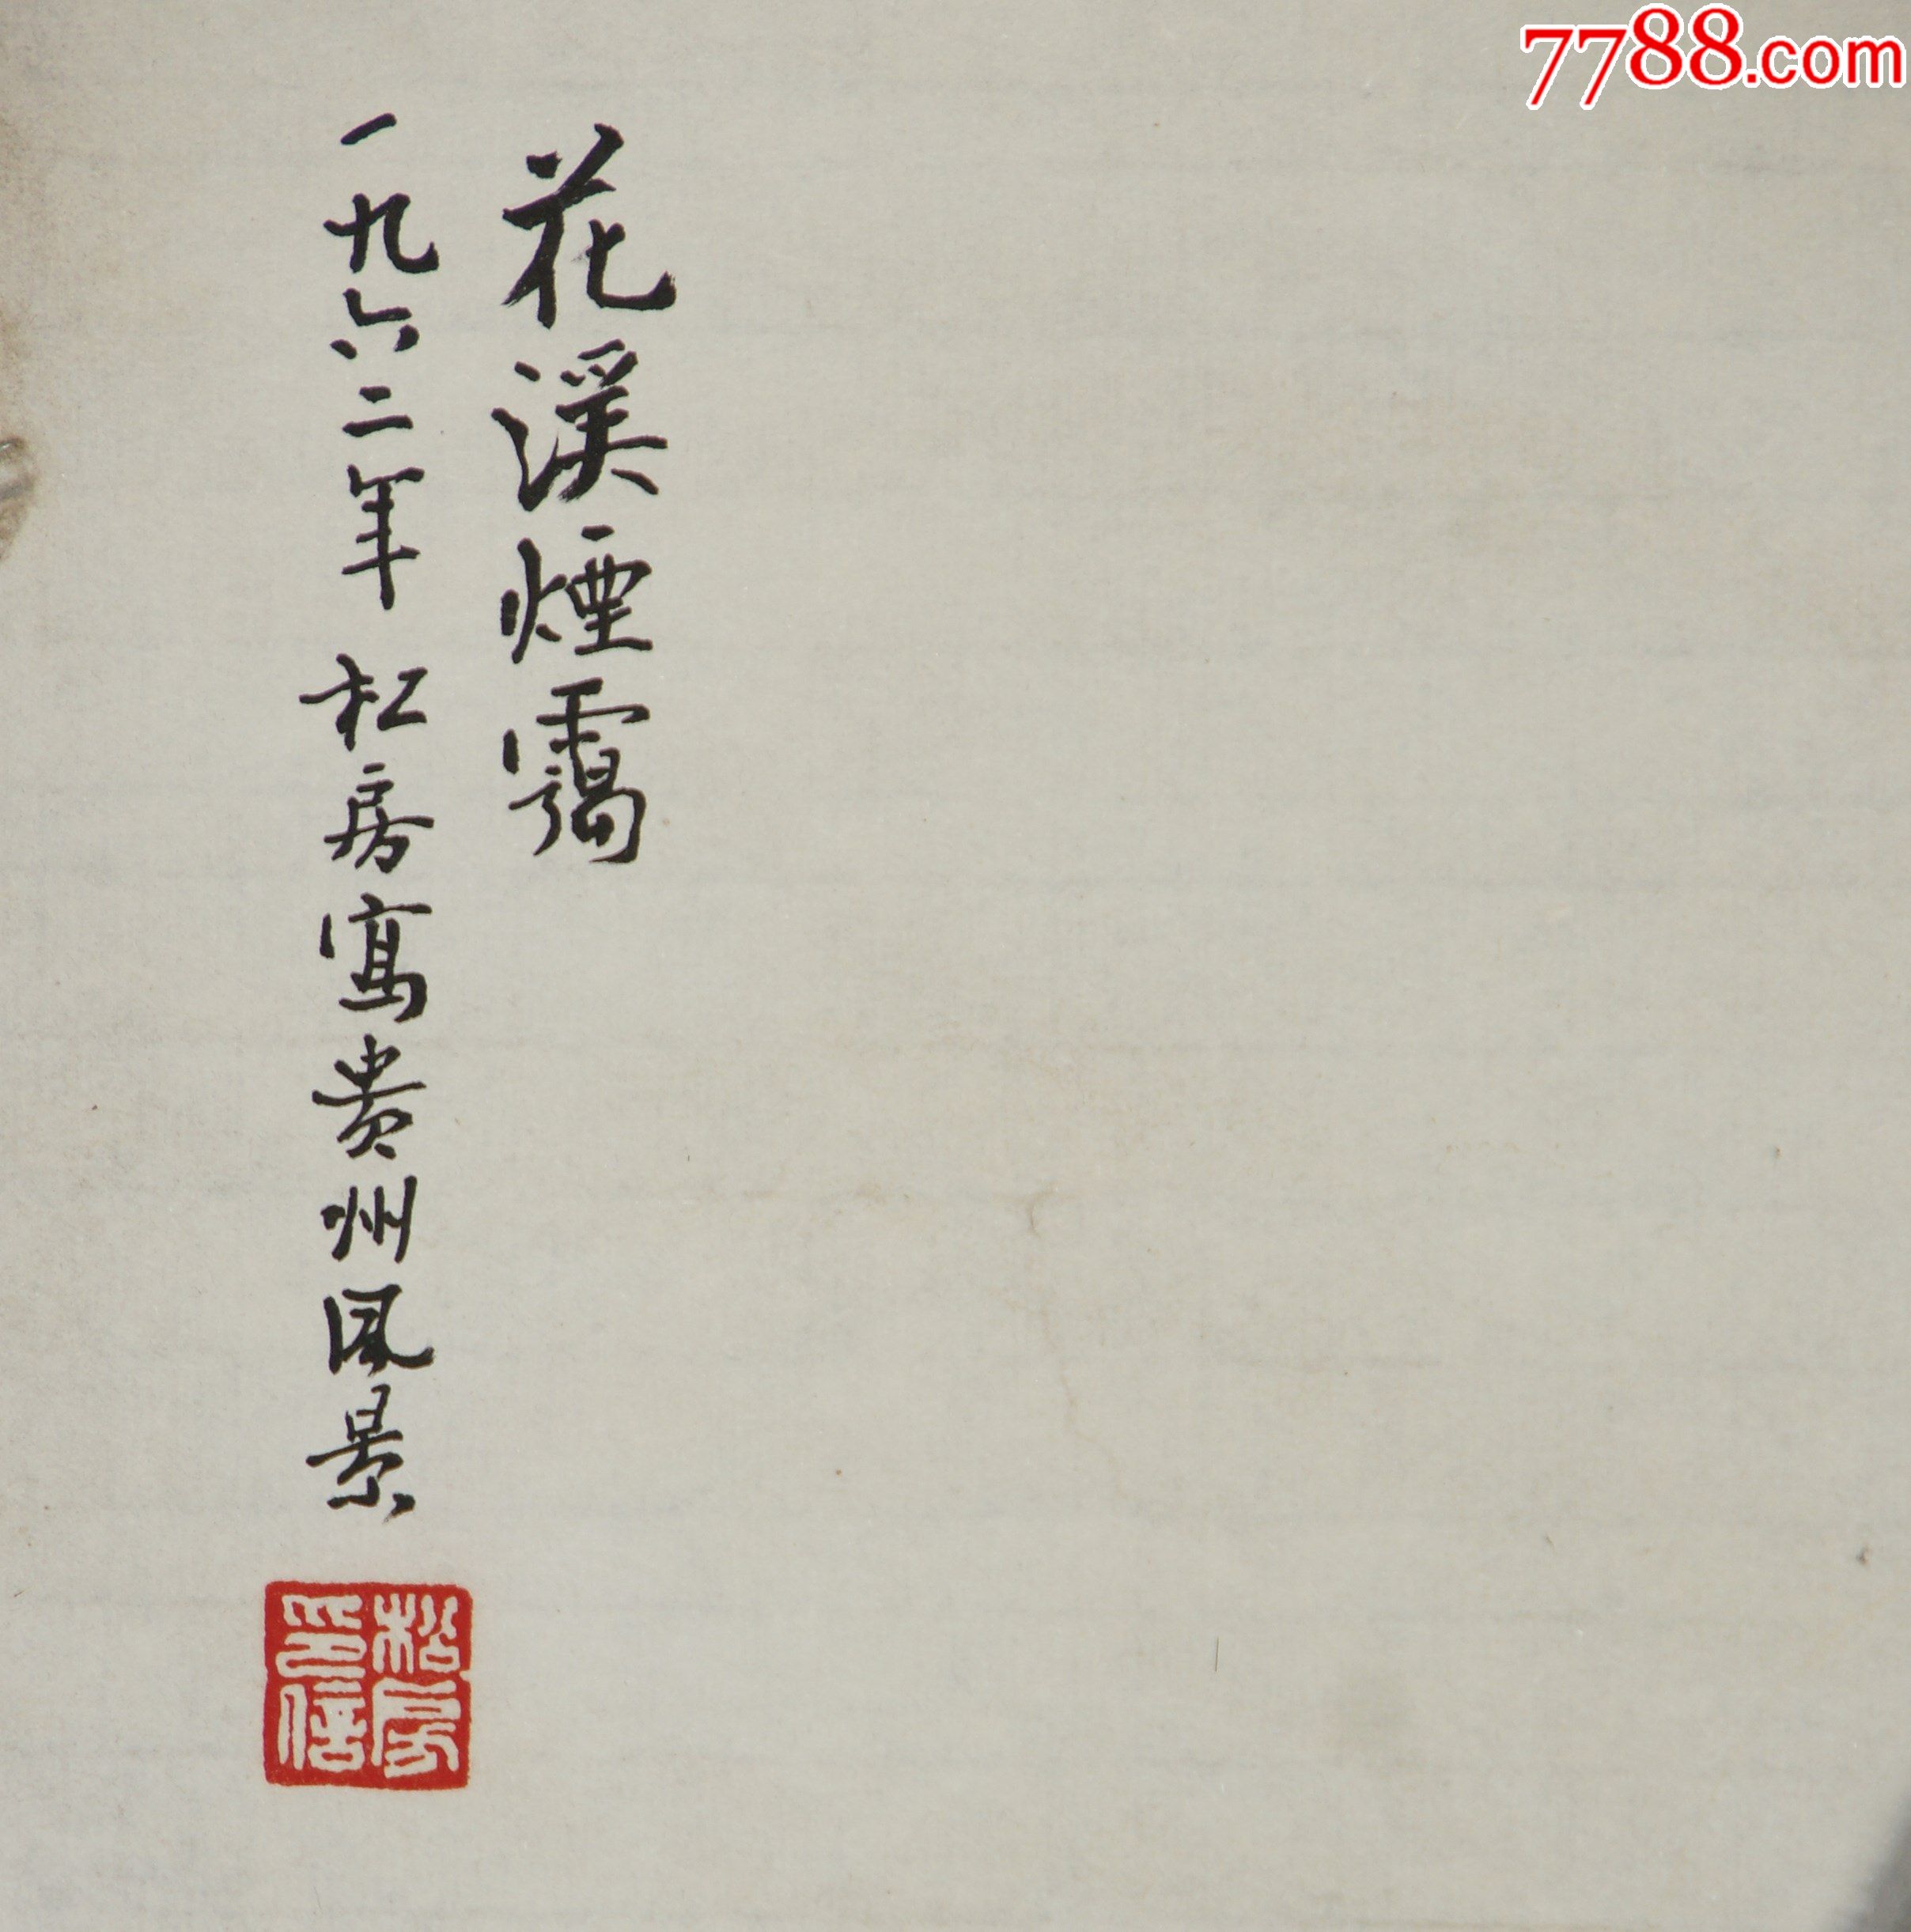 7788.com
花溪煙靄
一九六二年 松房寫貴州風景
松房
印信